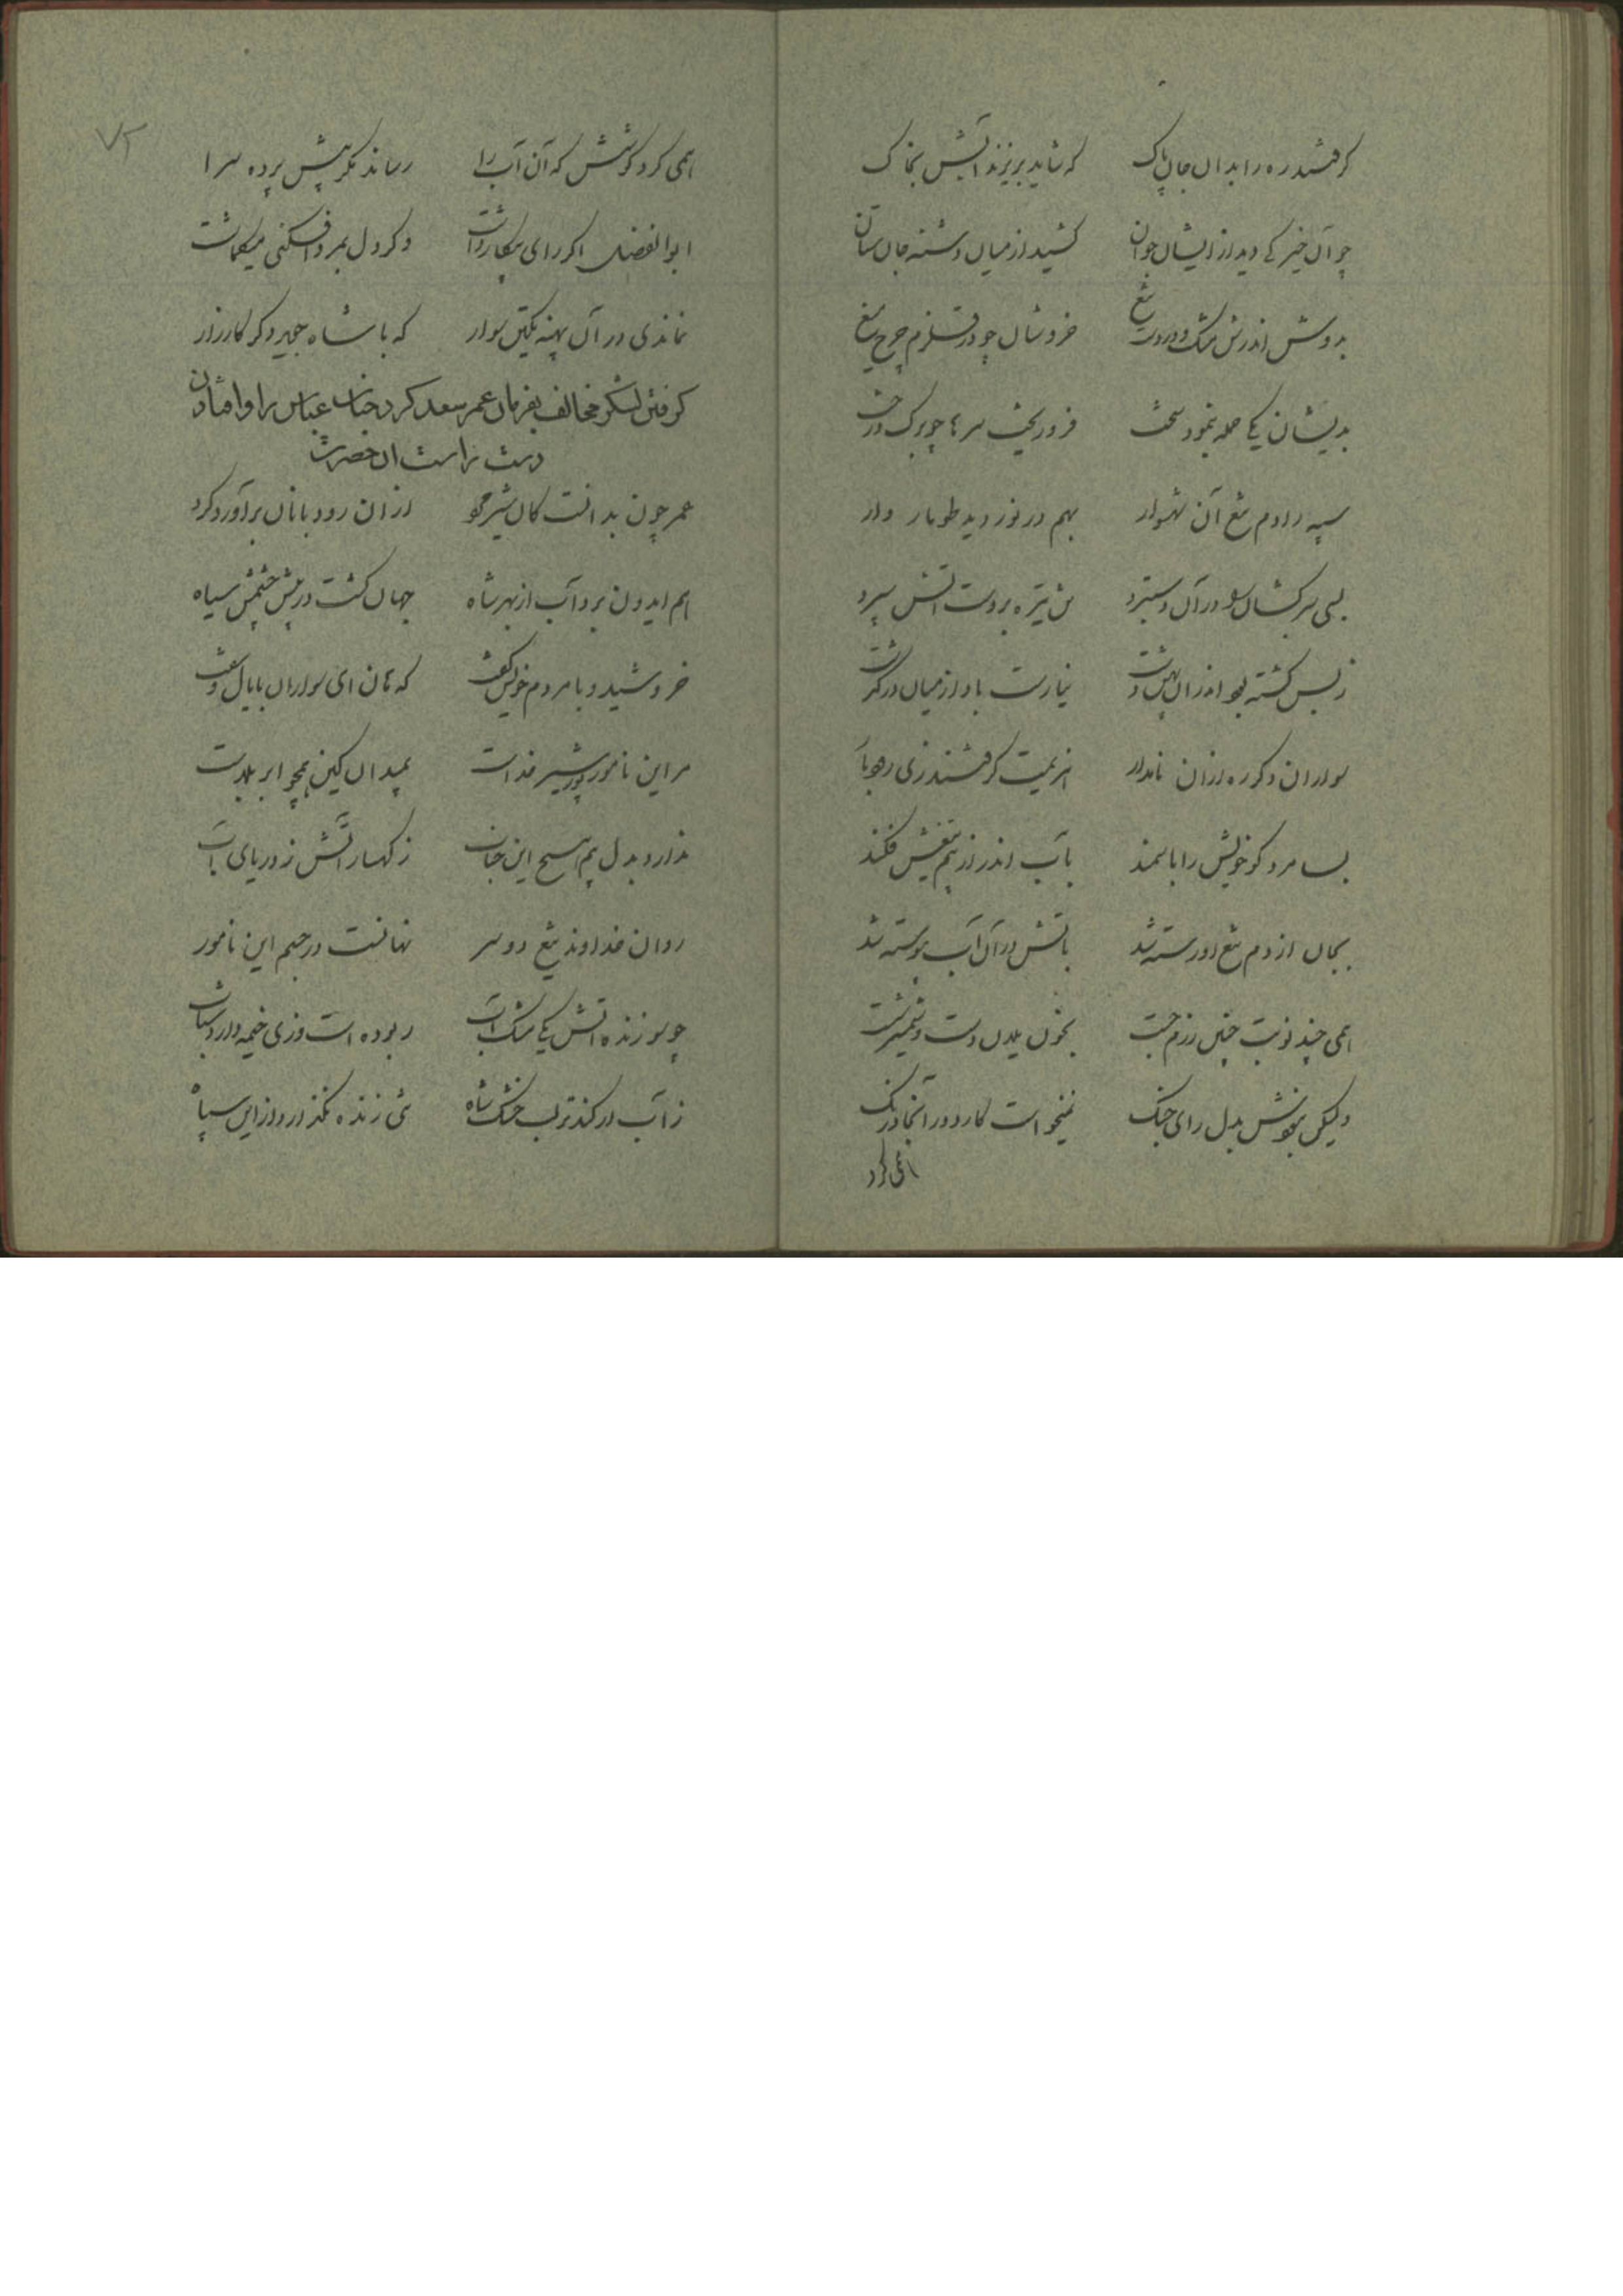 کرفتند ره را بدان جان پاک   که شاید بریزند آبش بخاک
چو آن خیرکی دید از ایشان جوان   کشید از میان دشنه جان ستان
بدوش اندرش مشک و در دست تیغ   خروشان چو در قلزم چرخ میغ
بدیشان یکی حمله بنمود سخت   فرو ریخت سرها چو برک درخت
سپه را دم تیغ آن شهسوار   بهم در نوردید طومار وار
بسی سرکشان را در آن دستبرد   تن تیره بر دست آتش سپرد
ز بس کشته بود اندر آن پهن دشت   نیارست باد از میان درکذشت
سواران دکر ره از آن نامدار   هزیمت کرفتند زی رودبار
بسا مرد کو خویش را با سمند   بآب اندر از بیم تیغش فکند
بجان از دم تیغ او رسته شد   بآتش در آن آب پیوسته شد
همی چند نوبت چنین رزم جست   بخون یلان دست و شمشیر شست
ولیکن نبودش بدل رای جنک   نمیخواست کارد در آنجا درنک
همی کرد
۷۲
همی کرد کوشش که آن آب را   رساند مکر پیش پرده سرا
ابوالفضل اکر رای پیکار داشت   وکر دل بمرد افکنی میکماشت
نماندی در آن پهنه یکتن سوار   که با شاه جوید دکر کارزار
کرفتن لشکر مخالف بفرمان عمر سعد کرد جناب عباس را و افتادن
دست راست آن حضرت
عمر چون بدانست کان شیر مرد   از آن رودبانان برآورد کرد
هم ایدون برد آب از بهر شاه   جهان کشت در پیش چشمش سیاه
خروشید و با مردم خویش کفت   که هان ای سواران با یال و سفت
مر این نامور پور شیر خداست   بمیدان کین همچو ابر بلاست
ندارد بدل بیم هیچ این جناب   ز کهسار آتش ز دریای آب
روان خداوند تیغ دو سر   نهانست در جسم این نامور
چو سوزنده آتش یکی مشک آب   ربوده است و زی خیمه دارد شتاب
ز آب ار کند تر لب خشک شاه   تنی زنده نکذارد از این سپاه